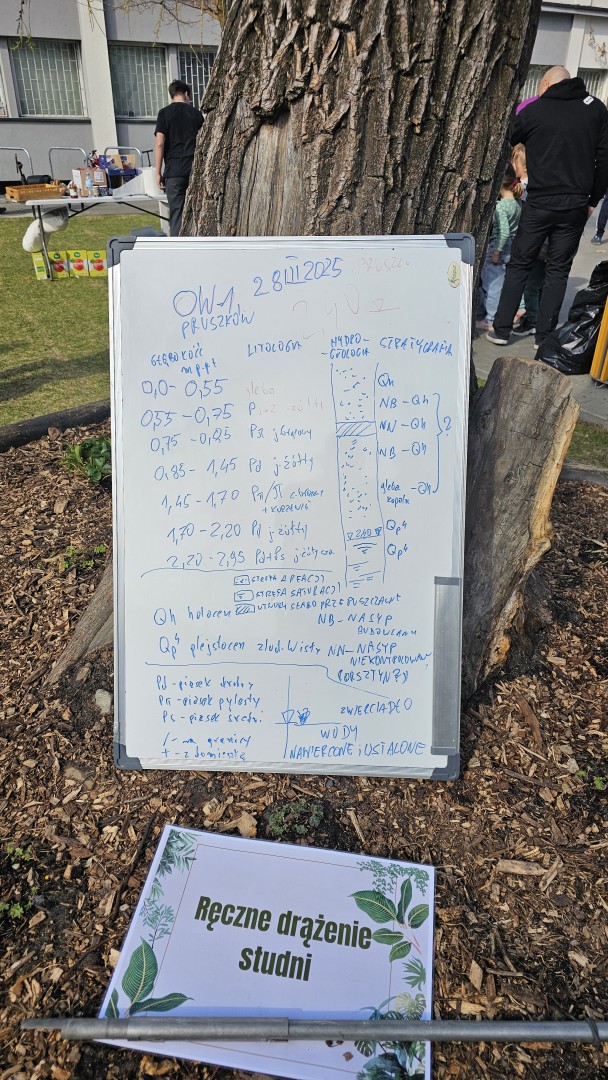 OW1 28III2025
PRUSZKÓW
GŁĘBOKOŚĆ LITOLOGIA HYDRO- STRATYGRAFIA
m p.p.t GEOLOGIA
0,0-0,55 gleba Qh
0,55-0,75 NB-Qh
0,75-0,85 NN-Qh
0,85-1,45 Pd j.żółty NB-Qh
1,45-1,70 gleba kopalna -Qh
+ KORZENIE
1,70-2,20 Pd j.żółty 2,40 Qp4
2,20-2,95 Pd+Ps Qp4
STREFA AERACJI
STREFA SATURACJI
UTWORY SŁABO PRZEPUSZCZALNE
Qh holocen NB-NASYP
BUDOWLANY
Qp4 plejstocen zlod. Wisły NN-NASYP
NIEKONTROLOWANY
Pd-piasek drobny
Pπ-piasek pylasty ZWIERCIADŁO
Ps-piasek średni
WODY
/-na granicy NAWIERCONE i USTALONE
+-z domieszką
Ręczne drążenie
studni